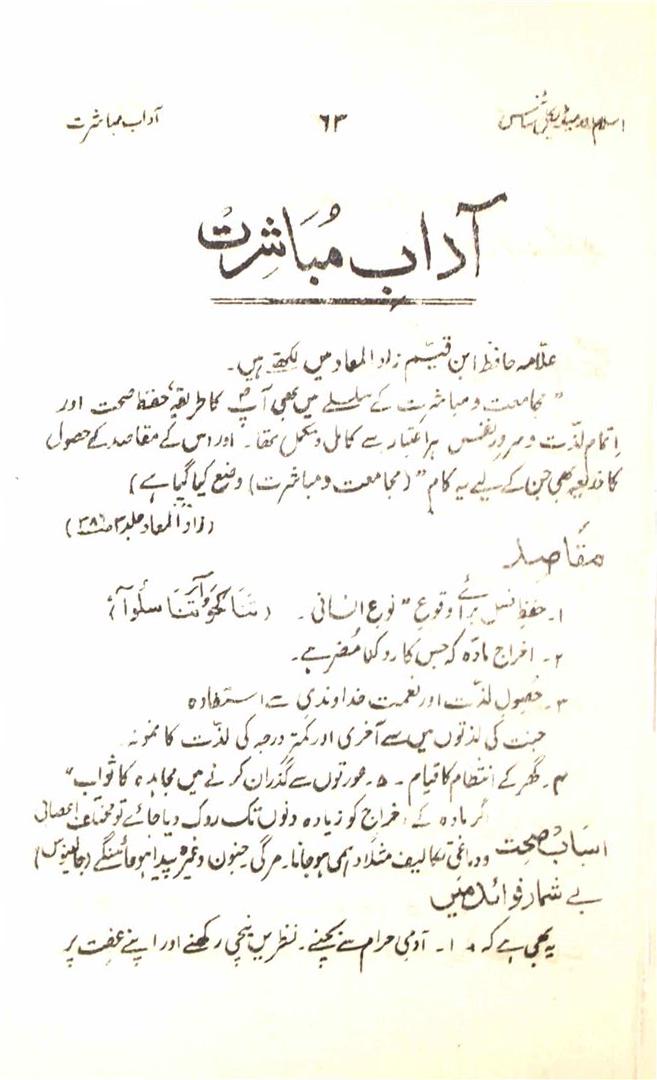 اسلام اور میڈیکل سائنس ۶۳ آداب مباشرت
آدابِ مُبَاشِرتْ
علّامہ حافظ ابن قیّم زاد المعاد میں لکھتے ہیں۔
"مجامعت و مباشرت کے سلسلے میں بھی آپؐ کا طریقہ، حفظ صحت اور
اتمام لذّت و سرور نفس ہر اعتبار سے کامل و مکمل تھا۔ اور اس کے مقاصد کے حصول
کا ذریعہ بھی جن کے لیے یہ کام" (مجامعت و مباشرت) وضع کیا گیا ہے)
(زاد المعاد جلد ۳ ص۳۸۶)
مقاصد
۱۔ حفظِ نسل برائے وقوعِ "نوعِ انسانی۔ (تناکحوا وتناسلوا)
۲۔ اخراج مادّہ کہ جس کا روکنا مُضر ہے۔
۳۔ حُصول لذّت اور نعمت خداوندی سے استفادہ
جنت کی لذتوں میں سے آخری اور کمتر درجہ کی لذّت کا نمونہ۔
۴۔ گھر کے انتظام کا قیام۔ ۵۔ عورتوں سے گذران کرنے میں مجاہدہ کا ثواب"
گر مادہ کے اخراج کو زیادہ دنوں تک روک دیا جائے تو مختلف اعصابی
اسبابُ صحت و دماغی تکالیف مثلاً وہمی ہو جانا۔ مرگی جنون وغیرہ پیدا ہو جائینگے (جالینوس)
بے شمار فوائد میں
یہ بھی ہے کہ ۱۔ آدمی حرام سے بچنے۔ نظریں نیچی رکھنے اور اپنے عفت پر